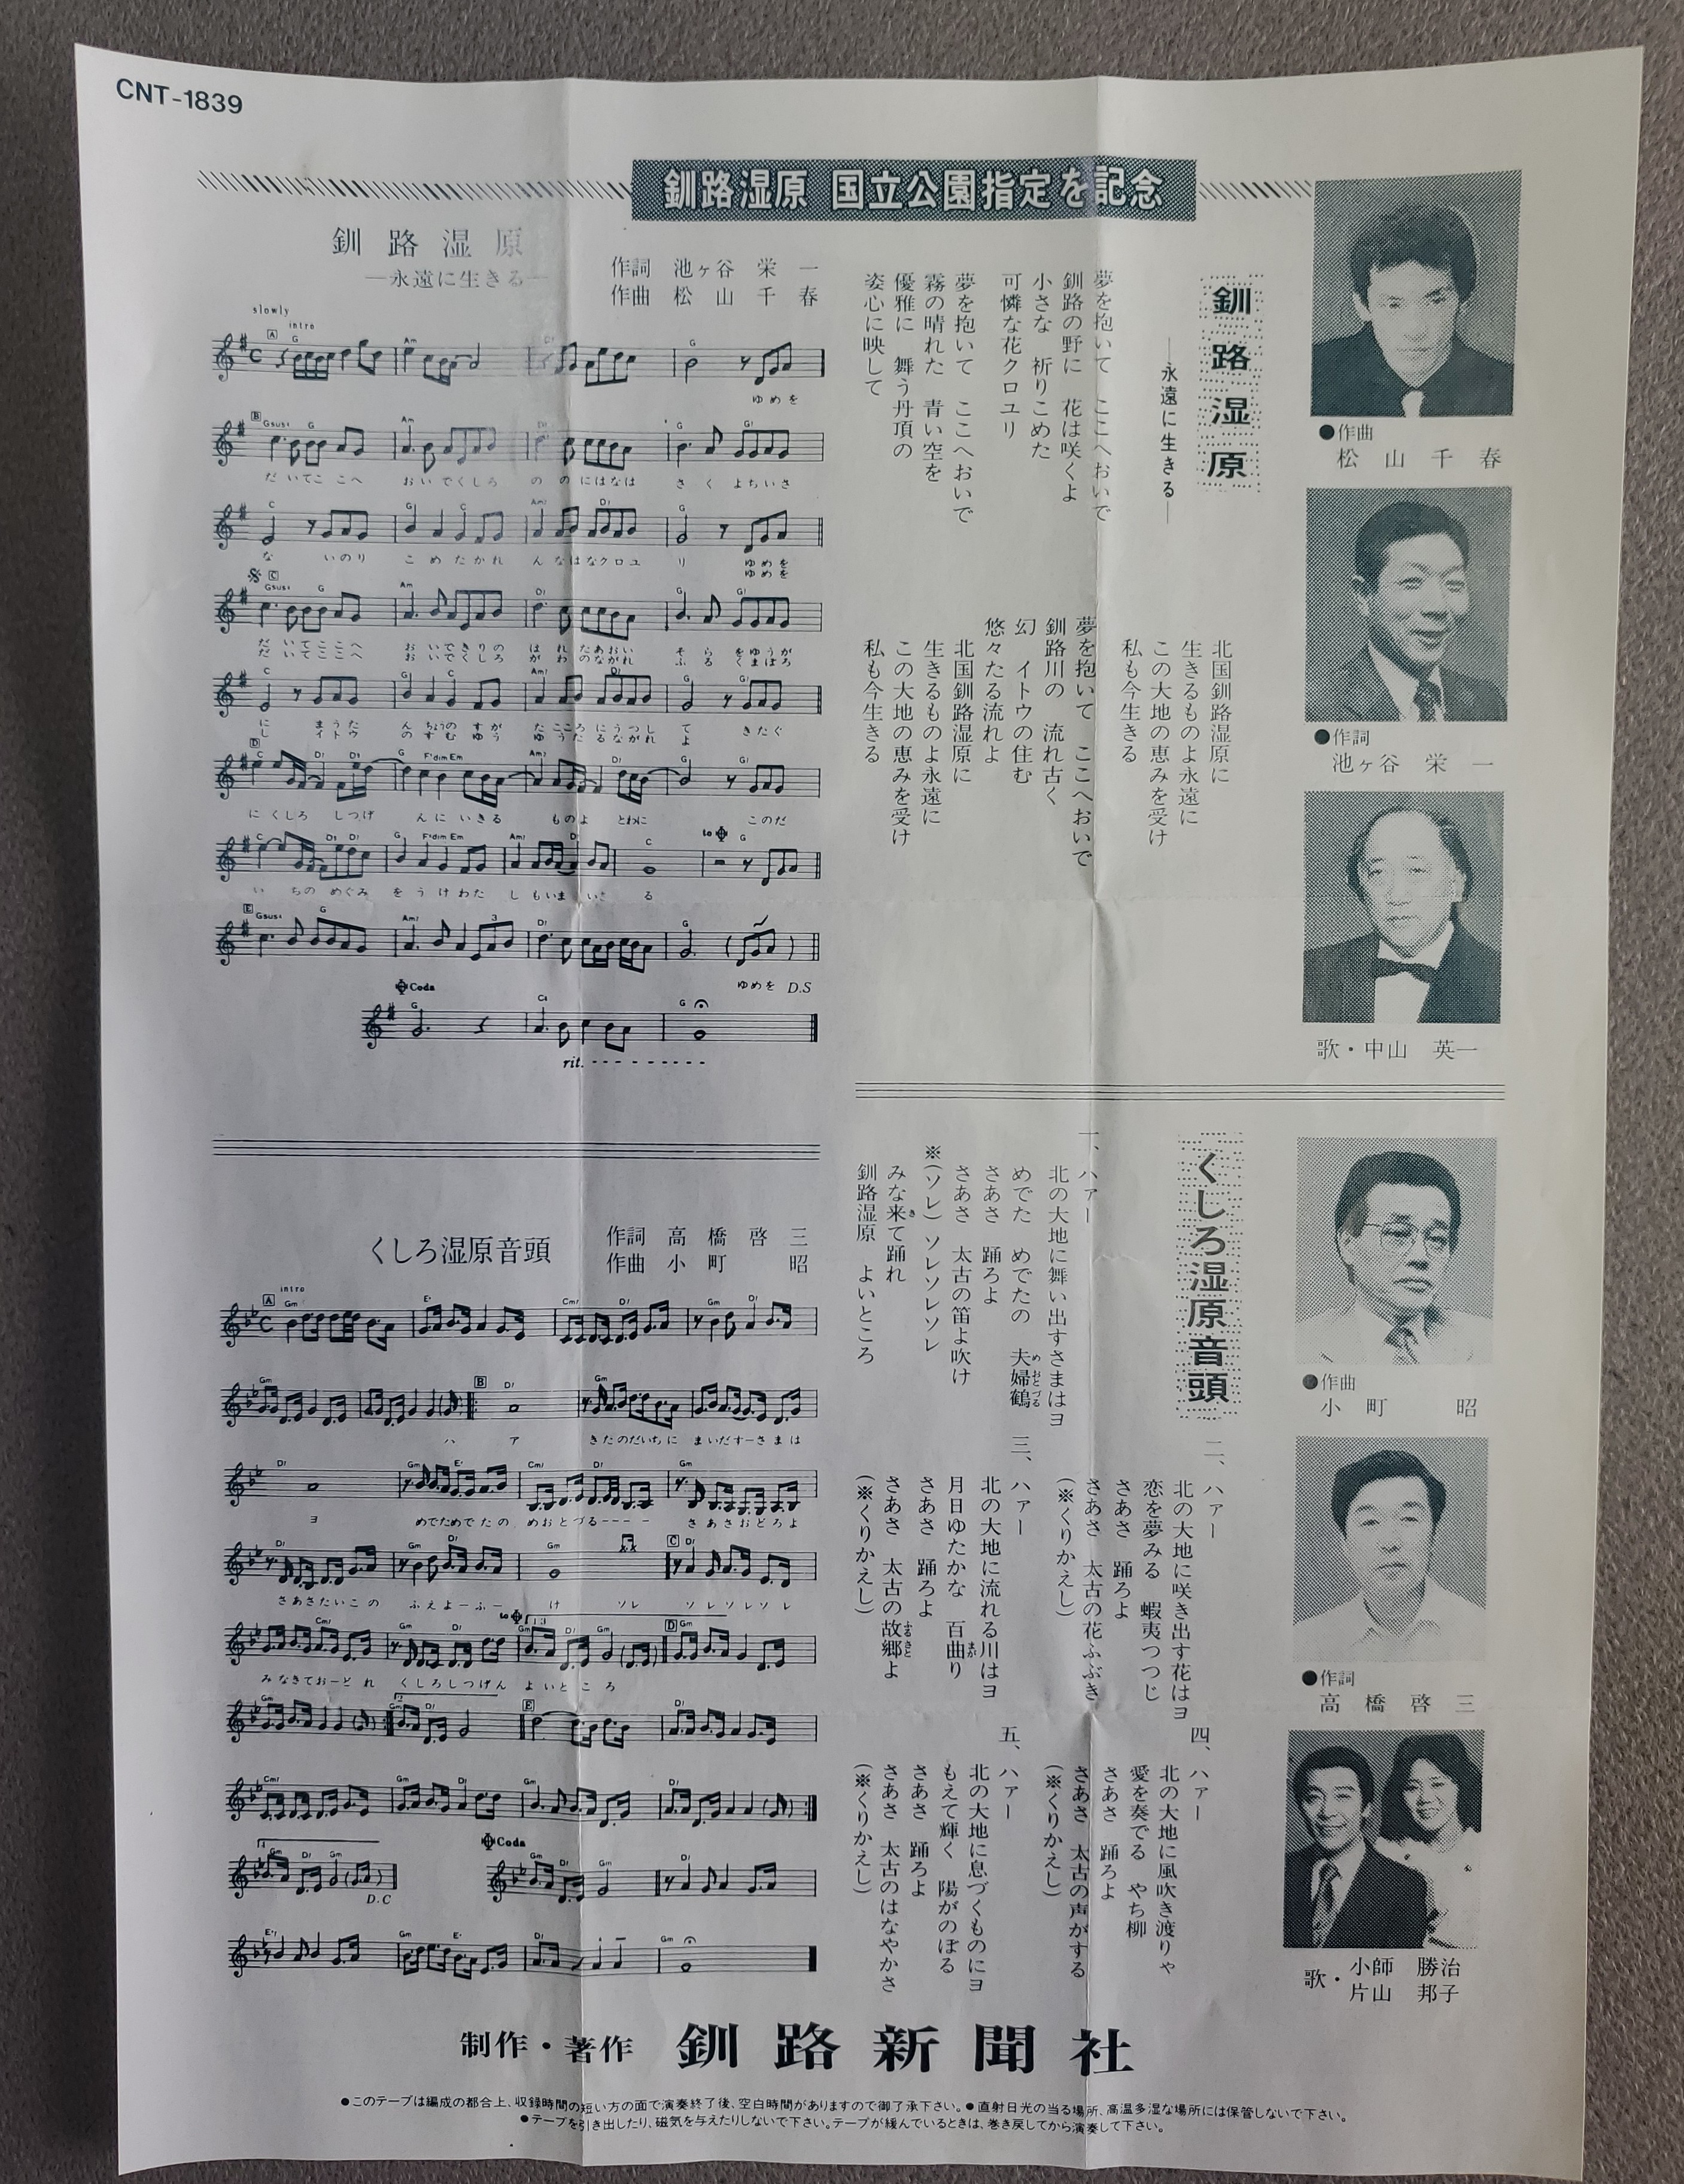 CNT-1839
釧路湿原 国立公園指定を記念
釧路湿原
―永遠に生きる―
作詞 池ヶ谷 栄一
作曲 松山千春
slowly
intro
ゆめを
だいてここへ おいでくしろ の のにはなは さ く よちいさ
な いのり こ め たかれ ん なはなクロユ リ ゆめを
ゆめを
だいてここへ おいできりの は れ たあおい そ ら をゆうが
だいてここへ おいでくしろ が わ のながれ ふ る くまぼろ
に まうた ん ちょうの すが た こころ にうつし て きたぐ
し イトウ の す む ゆう ゆ う た るながれ よ
に くしろ しつげ んに いきる ものよ とわに このだ
い ちの めぐみ を う け わた し もいま いき る
ゆめを D.S
Coda
rit.
釧路湿原
―永遠に生きる―
夢を抱いて ここへおいで
釧路の野に 花は咲くよ
小さな 祈りこめた
可憐な花クロユリ
夢を抱いて ここへおいで
霧の晴れた 青い空を
優雅に 舞う丹頂の
姿心に映して
北国釧路湿原に
生きるものよ永遠に
この大地の恵みを受け
私も今生きる
夢を抱いて ここへおいで
釧路川の 流れ古く
幻 イトウの住む
悠々たる流れよ
北国釧路湿原に
生きるものよ永遠に
この大地の恵みを受け
私も今生きる
●作曲
松山千春
●作詞
池ヶ谷 栄一
歌・中山 英一
くしろ湿原音頭
作詞 高橋啓三
作曲 小町 昭
intro
ハ ア きたのだいちに まいだすーさ ま は
ヨ めでためで た の めおとづるーーーー さ あさおどろよ
さあさたいこ の ふえよーふー け ソレ ソレソレソレ
みなきておーど れ くしろしつげん よ いと こ ろ
D.C
Coda
くしろ湿原音頭
一、ハァー
北の大地に舞い出すさまはヨ
めでた めでたの 夫婦鶴
めおとづる
さあさ 踊ろよ
さあさ 太古の笛よ吹け
※(ソレ)ソレソレソレ
みな来て踊れ
き
釧路湿原 よいところ
二、ハァー
北の大地に咲き出す花はヨ
恋を夢みる 蝦夷つつじ
さあさ 踊ろよ
さあさ 太古の花ふぶき
(※くりかえし)
三、ハァー
北の大地に流れる川はヨ
月日ゆたかな 百曲り
まが
さあさ 踊ろよ
さあさ 太古の故郷よ
ふるさと
(※くりかえし)
四、ハァー
北の大地に風吹き渡りゃ
愛を奏でる やち柳
さあさ 踊ろよ
さあさ 太古の声がする
(※くりかえし)
五、ハァー
北の大地に息づくものにヨ
もえて輝く 陽がのぼる
さあさ 踊ろよ
さあさ 太古のはなやかさ
(※くりかえし)
●作曲
小町 昭
●作詞
高橋啓三
歌・小師 勝治
片山 邦子
制作・著作 釧路新聞社
●このテープは編成の都合上、収録時間の短い方の面で演奏終了後、空白時間がありますので御了承下さい。●直射日光の当る場所、高温多湿な場所には保管しないで下さい。
●テープを引き出したり、磁気を与えたりしないで下さい。テープが緩んでいるときは、巻き戻してから演奏して下さい。